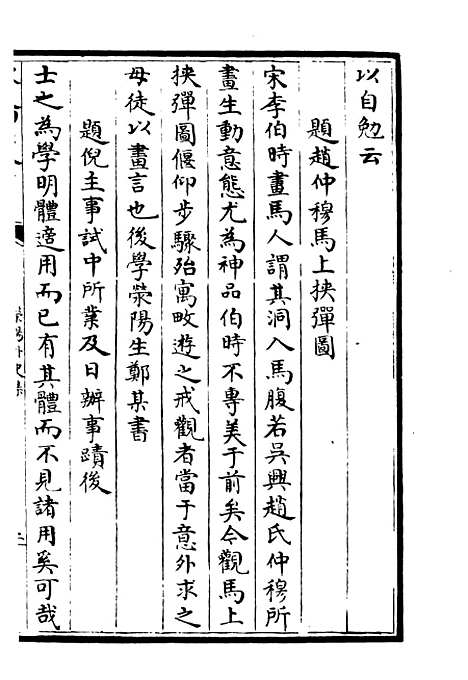 以自勉云
題趙仲穆馬上挾彈圖
宋李伯時畫馬人謂其洞入馬腹若吳興趙氏仲穆所
畫生動意態尤為神品伯時不專美于前矣今觀馬上
挾彈圖偃仰步驟殆寓畋遊之戒觀者當于意外求之
毋徒以畫言也後學滎陽生鄭某書
題倪主事試中所業及日辦事蹟後
士之為學明體適用而已有其體而不見諸用奚可哉
滎陽外史集